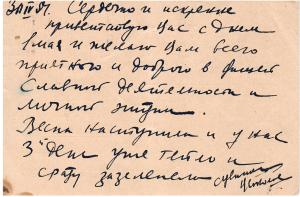 Сердечно и искренне
приветствую Вас с днем
1 мая и желаю Вам всего
приятного и доброго в Вашей
славной деятельности и
личной жизни.
Весна наступила и у нас
3й день уже тепло и
сразу зазеленело